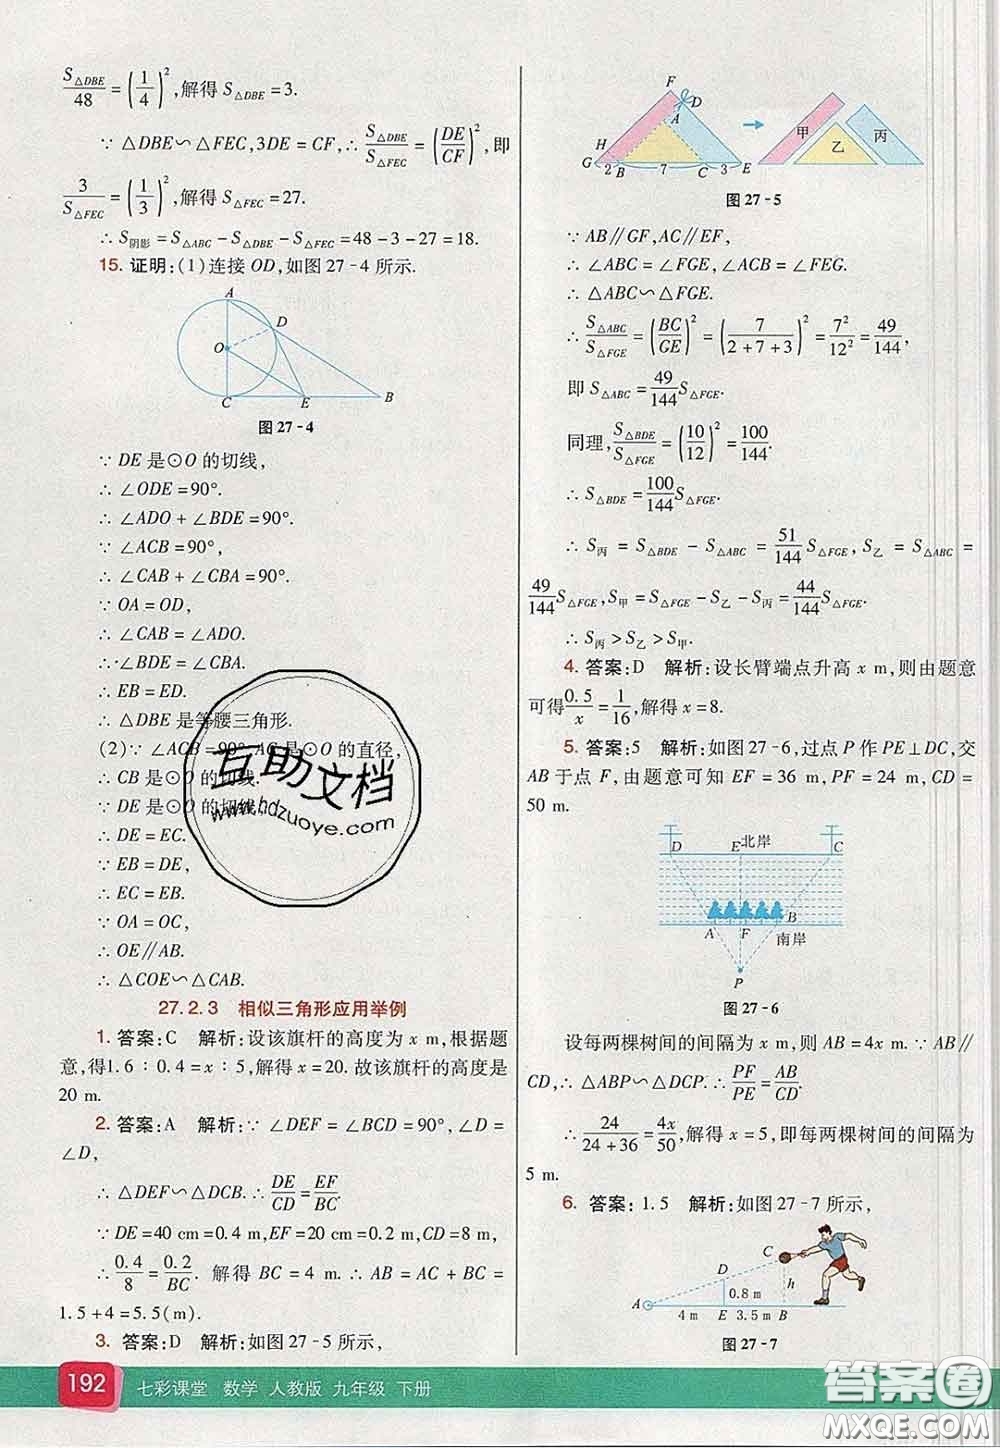 S△DBE/48 = (1/4)², 解得 S△DBE = 3.
∵ △DBE∽△FEC, 3DE = CF, ∴ S△DBE/S△FEC = (DE/CF)², 即
3/S△FEC = (1/3)², 解得 S△FEC = 27.
∴ S阴影 = S△ABC − S△DBE − S△FEC = 48 − 3 − 27 = 18.
15. 证明:(1)连接 OD, 如图 27-4 所示.
A
D
O
C E B
图 27-4
∵ DE 是⊙O 的切线,
∴ ∠ODE = 90°.
∴ ∠ADO + ∠BDE = 90°.
∵ ∠ACB = 90°,
∴ ∠CAB + ∠CBA = 90°.
∵ OA = OD,
∴ ∠CAB = ∠ADO.
∴ ∠BDE = ∠CBA.
∴ EB = ED.
∴ △DBE 是等腰三角形.
(2)∵ ∠ACB = 90°, AC 是⊙O 的直径,
∴ CB 是⊙O 的切线.
∵ DE 是⊙O 的切线,
∴ DE = EC.
∵ EB = DE,
∴ EC = EB.
∵ OA = OC,
∴ OE∥AB.
∴ △COE∽△CAB.
27.2.3 相似三角形应用举例
1. 答案:C 解析:设该旗杆的高度为 x m, 根据题
意, 得1.6∶0.4 = x∶5, 解得 x = 20. 故该旗杆的高度是
20 m.
2. 答案:A 解析:∵ ∠DEF = ∠BCD = 90°, ∠D =
∠D,
∴ △DEF∽△DCB. ∴ DE/CD = EF/BC.
∵ DE = 40 cm = 0.4 m, EF = 20 cm = 0.2 m, CD = 8 m,
∴ 0.4/8 = 0.2/BC. 解得 BC = 4 m. ∴ AB = AC + BC =
1.5 + 4 = 5.5(m).
3. 答案:D 解析:如图 27-5 所示,
F
D
A
H
G 2 B 7 C 3 E
甲 乙 丙
图 27-5
∵ AB∥GF, AC∥EF,
∴ ∠ABC = ∠FGE, ∠ACB = ∠FEG.
∴ △ABC∽△FGE.
∴ S△ABC/S△FGE = (BC/GE)² = (7/(2+7+3))² = 7²/12² = 49/144,
即 S△ABC = 49/144 S△FGE.
同理, S△BDE/S△FGE = (10/12)² = 100/144.
∴ S△BDE = 100/144 S△FGE.
∴ S丙 = S△BDE − S△ABC = 51/144 S△FGE, S乙 = S△ABC =
49/144 S△FGE, S甲 = S△FGE − S乙 − S丙 = 44/144 S△FGE.
∴ S丙 > S乙 > S甲.
4. 答案:D 解析:设长臂端点升高 x m, 则由题意
可得 0.5/x = 1/16, 解得 x = 8.
5. 答案:5 解析:如图 27-6, 过点 P 作 PE⊥DC, 交
AB 于点 F, 由题意可知 EF = 36 m, PF = 24 m, CD =
50 m.
D E 北岸 C
B
A F 南岸
P
图 27-6
设每两棵树间的间隔为 x m, 则 AB = 4x m. ∵ AB∥
CD, ∴ △ABP∽△DCP. ∴ PF/PE = AB/CD.
∴ 24/(24+36) = 4x/50, 解得 x = 5, 即每两棵树间的间隔为
5 m.
6. 答案:1.5 解析:如图 27-7 所示,
C
D
h
0.8 m
A 4 m E 3.5 m B
图 27-7
192 七彩课堂 数学 人教版 九年级 下册
互助文档
www.hdzuoye.com
答案圈
MXQE.COM